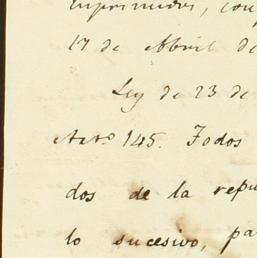 imprimidos, con
17 de Abril de
Ley de 23 de
Arto. 145. Todos
dos de la repu
lo sucesivo, pa